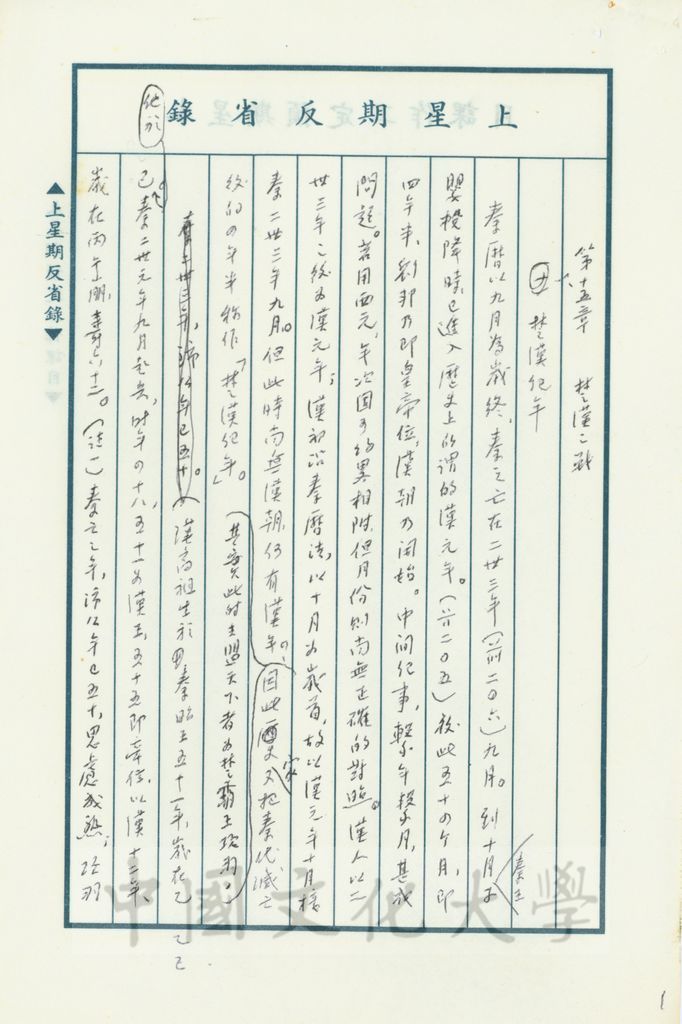 上星期反省錄
第十五章　楚漢之戰
楚漢紀年
秦曆以九月為歲終，秦之亡在二世三年（前二〇六）九月。到十月子
秦王
嬰投降時，已進入歷史上所謂的漢元年。（前二〇五）後此五十四個月，即
四年半，劉邦乃即皇帝位，漢朝乃開始。中間紀事，繫年投月，甚成
問題。若用西元，年次固可約畧相附，但月份則尚無正確的對照。漢人以二
世三年之後為漢元年；漢初沿秦曆法，以十月為歲首，故以漢元年十月接
秦二世三年九月。但此時尚無漢朝，何有漢年？因此歷史家又把秦代滅亡
後的四年半稱作「楚漢紀年」。（其實此時主盟天下者為楚霸王項羽。）
秦二世三年，沛公年已五十。漢高祖生於秦昭王五十一年，歲在乙
他於
巳，秦二世元年九月起兵，時年四十八，五十一為漢王，五十五即帝位，以漢十二年、
乙巳
歲在丙午崩，壽六十二。（註一）秦亡之年，沛公年已五十，思慮成熟；項羽
▲上星期反省錄▼
中國文化大學
1